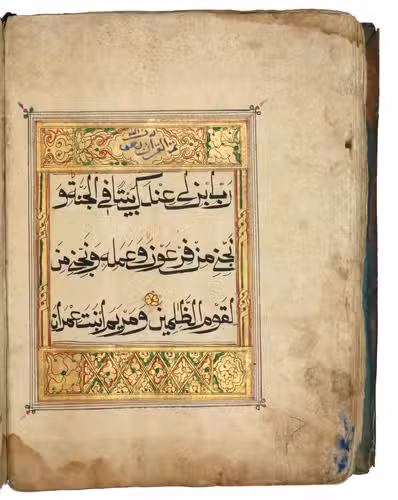 رب ابن لي عندك بيتا في الجنة و
نجني من فرعون وعمله ونجني من
القوم الظلمين ومريم ابنت عمران